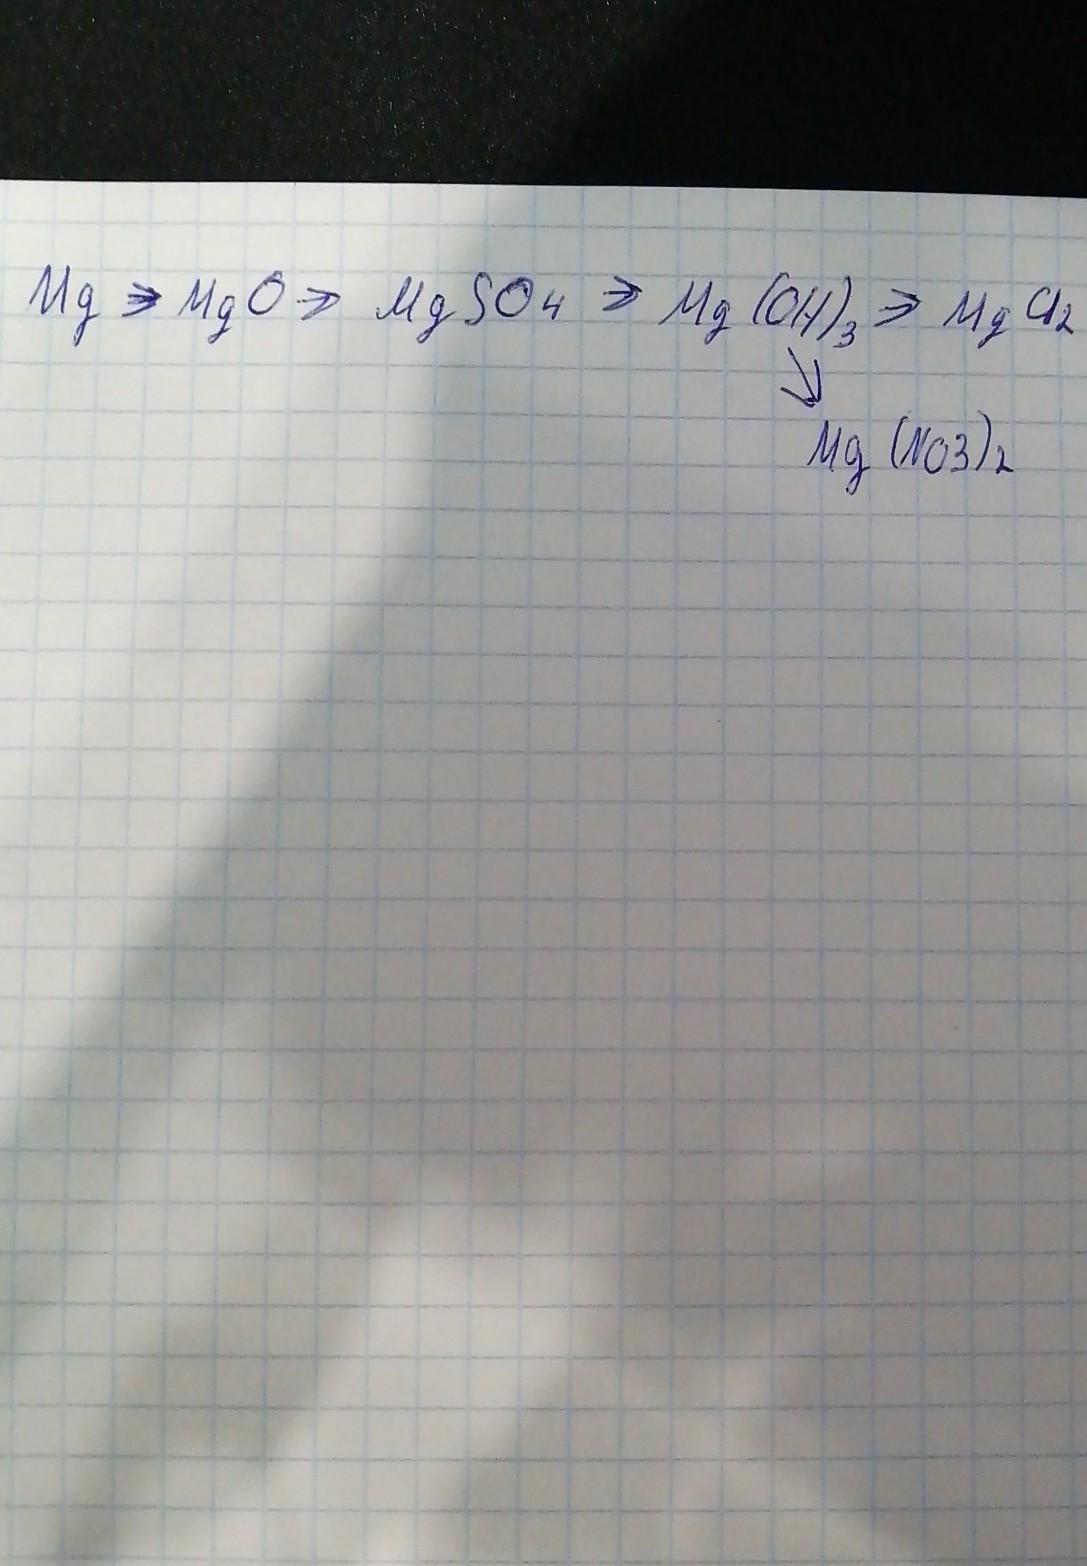 Mg → MgO → MgSO4 → Mg(OH)3 → MgCl2
↘
Mg(NO3)2